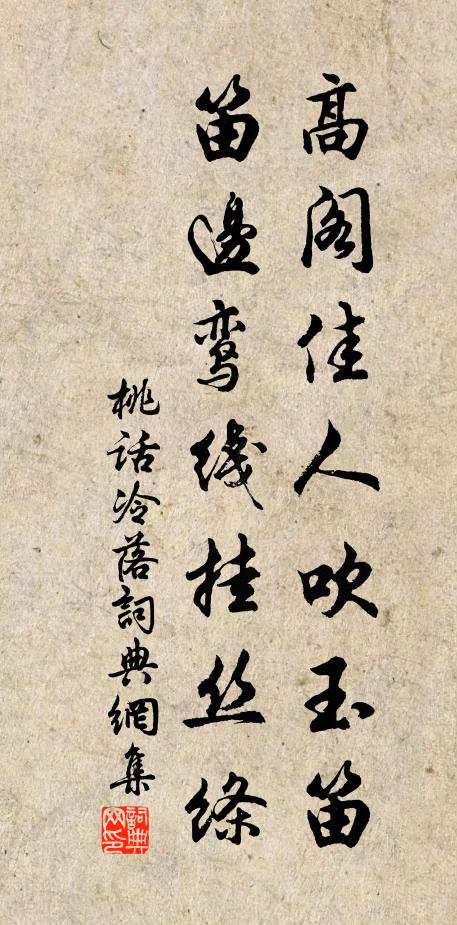 高阁佳人吹玉笛
笛邊鸾綫挂丝絛
桃话冷落詞典網集
詞典網印